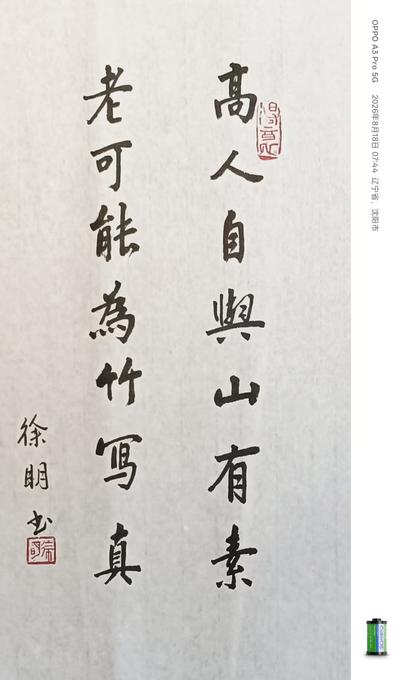 高人自與山有素
老可能為竹寫真
徐明书
OPPO A3 Pro 5G
2026年8月18日 07:44 辽宁省，沈阳市